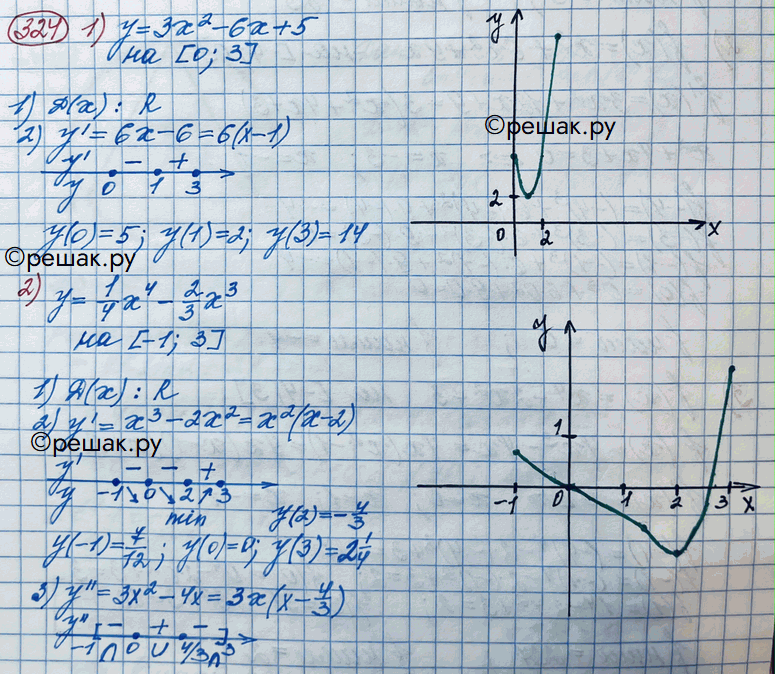 324 1) y = 3x² - 6x + 5
на [0; 3]
1) D(x): R
2) y' = 6x - 6 = 6(x-1)
y' - +
y 0 1 3
y(0) = 5; y(1) = 2; y(3) = 14
©решак.ру
2) y = 1/4 x⁴ - 2/3 x³
на [-1; 3]
1) D(x): R
2) y' = x³ - 2x² = x²(x-2)
©решак.ру
y' - - +
y -1 ↘ 0 ↘ 2 ↗ 3
min y(2) = -4/3
y(-1) = 7/12; y(0) = 0; y(3) = 2 1/4
3) y'' = 3x² - 4x = 3x(x - 4/3)
y'' [ - + - ]
-1 ∩ 0 ∪ 4/3 ∩ 3
y
©решак.ру
2
0 2 x
y
1
-1 0 1 2 3 x